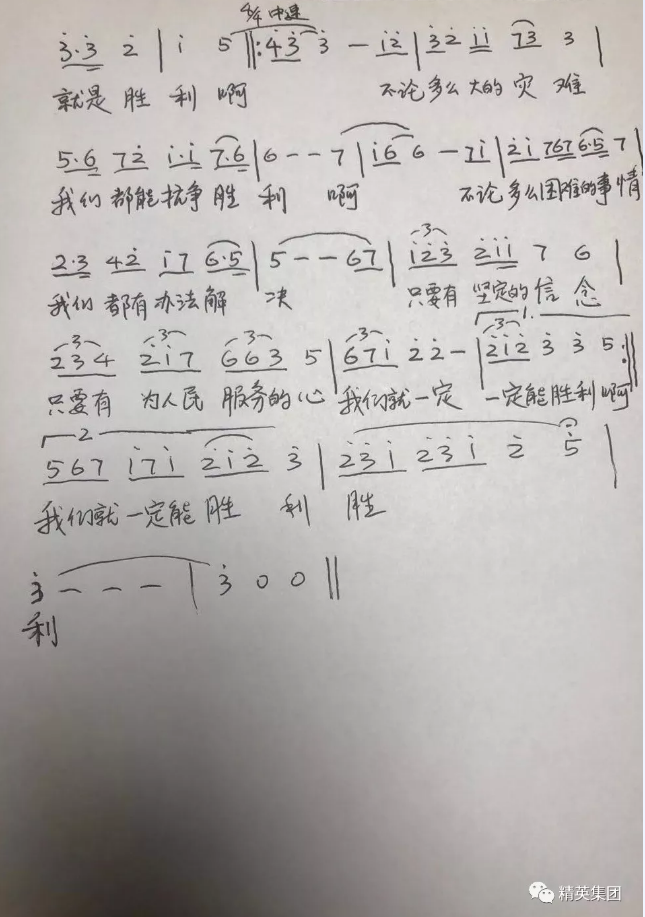 4/4 中速
3·3 2 | i 5 ‖: 4 3 3 — i 2 | 3 2 i i 7 3 3 |
就是 胜 利 啊 不论多么大的灾 难
5·6 7 2 i·i 7·6 | 6 - - 7 | i 6 6 - 7 i | 2 i 7 6 7 6·5 7 |
我们 都能抗争胜 利 啊 不论多么困难的事情
2·3 4 2 i 7 6·5 | 5 - - 6 7 | i 2 3 2 i i 7 6 |
我们 都有办法解 决 只要有 坚定的信 念
2 3 4 2 i 7 6 6 3 5 | 6 7 i 2 2 - | 2 i 2 3 3 5 :‖
只要有 为人民 服务的心 我们就一定 一定能胜利啊
5 6 7 i 7 i 2 i 2 3 | 2 3 i 2 3 i 2 5 |
我们就一定能胜 利 胜
3 — — — | 3 0 0 ‖
利
精英集团